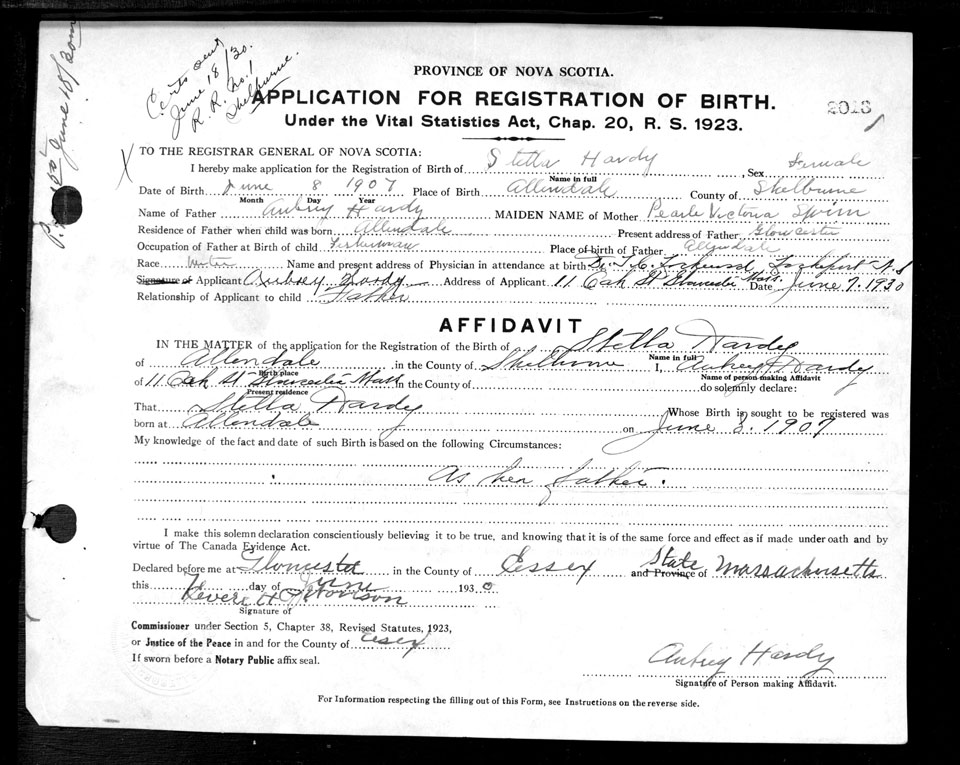 Certs sent
June 18/30.
R. R. No. 1
Shelburne.
June 18/30
PROVINCE OF NOVA SCOTIA.
APPLICATION FOR REGISTRATION OF BIRTH.
2013
Under the Vital Statistics Act, Chap. 20, R. S. 1923.
X TO THE REGISTRAR GENERAL OF NOVA SCOTIA:
I hereby make application for the Registration of Birth of Stella Hardy, Sex Female
Name in full
Date of Birth June 8 1907 Place of Birth Allendale County of Shelburne
Month Day Year
Name of Father Aubrey Hardy MAIDEN NAME of Mother Pearle Victoria Swim
Residence of Father when child was born Allendale Present address of Father Gloucester
Occupation of Father at Birth of child Fisherman Place of birth of Father Allendale
Race White Name and present address of Physician in attendance at birth Dr. Lockeport N.S
Signature of Applicant Aubrey Hardy Address of Applicant 11 Oak St Gloucester Mass. Date June 7. 1930
Relationship of Applicant to child Father
AFFIDAVIT
IN THE MATTER of the application for the Registration of the Birth of Stella Hardy
Name in full
of Allendale in the County of Shelburne I, Aubrey Hardy
Birth place Name of person making Affidavit
of 11 Oak St Gloucester Mass in the County of do solemnly declare:
Present residence
That Stella Hardy Whose Birth is sought to be registered was
born at Allendale on June 8. 1907
My knowledge of the fact and date of such Birth is based on the following Circumstances:
As her father.
I make this solemn declaration conscientiously believing it to be true, and knowing that it is of the same force and effect as if made under oath and by
virtue of The Canada Evidence Act.
Declared before me at Gloucester in the County of Essex State and Province of Massachusetts
this day of June 1930
Signature of
Commissioner under Section 5, Chapter 38, Revised Statutes, 1923,
or Justice of the Peace in and for the County of Essex
If sworn before a Notary Public affix seal.
Aubrey Hardy
Signature of Person making Affidavit.
For Information respecting the filling out of this Form, see Instructions on the reverse side.